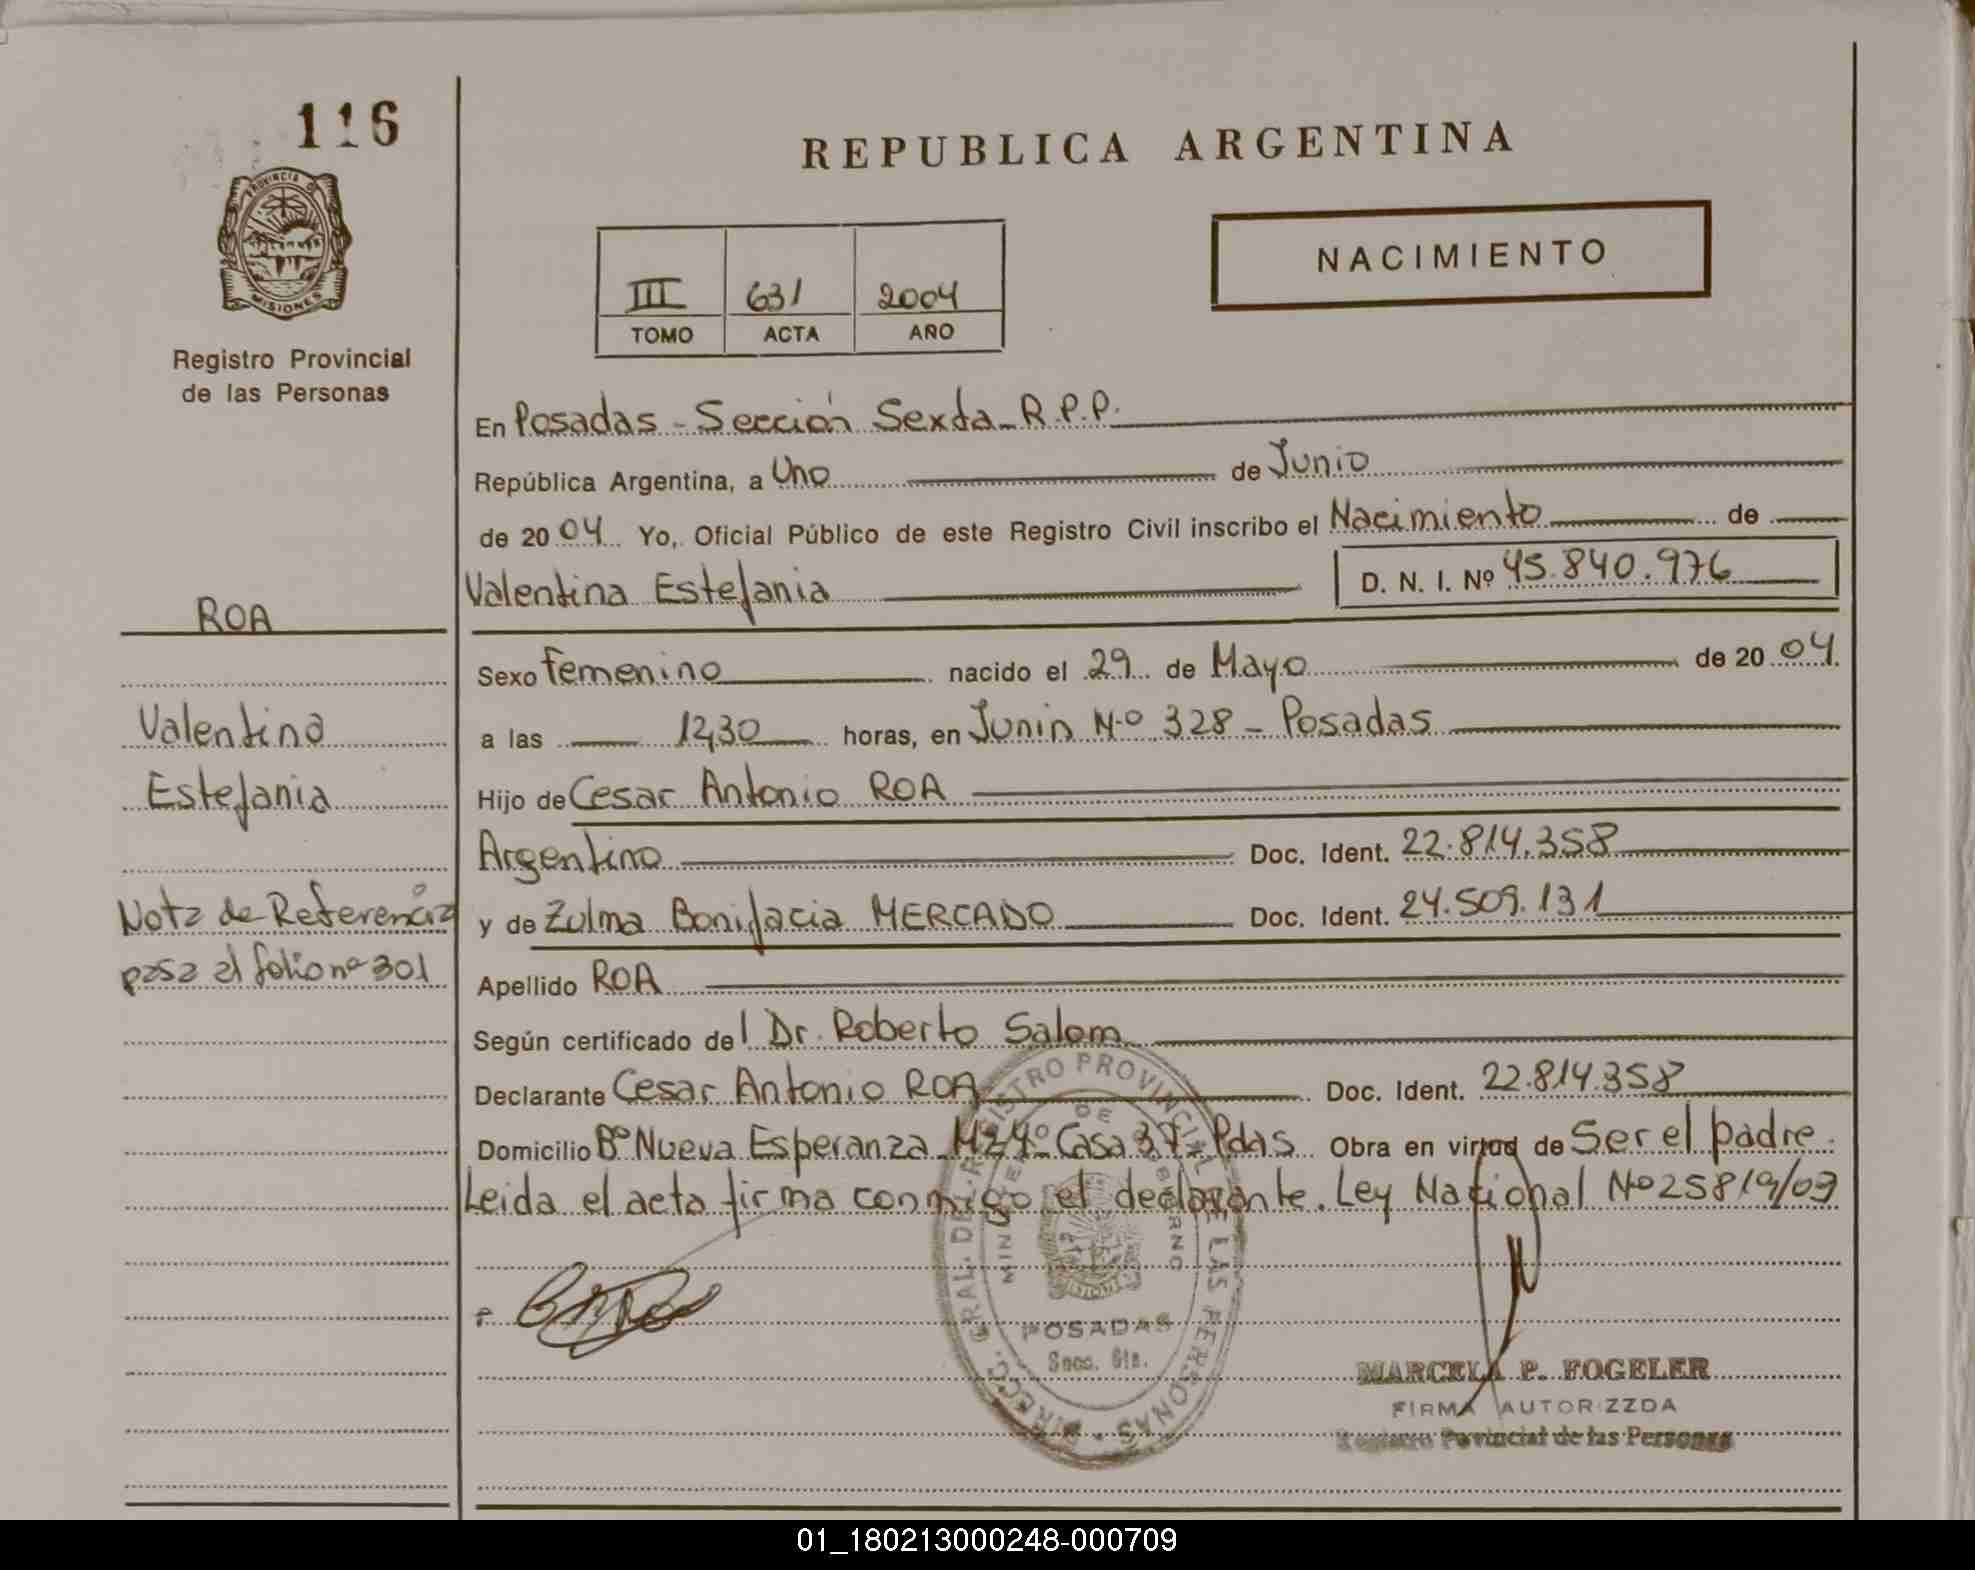 116
PROVINCIA D
MISIONES
Registro Provincial
de las Personas
REPUBLICA ARGENTINA
NACIMIENTO
III 631 2004
TOMO ACTA AÑO
En Posadas - Sección Sexta - R.P.P.
República Argentina, a Uno de Junio
de 2004 Yo, Oficial Público de este Registro Civil inscribo el Nacimiento de
Valentina Estefania D. N. I. Nº 45.840.976
ROA
Sexo Femenino nacido el 29 de Mayo de 2004
Valentina
a las 12,30 horas, en Junin Nº 328 - Posadas
Estefania
Hijo de Cesar Antonio ROA
Argentino Doc. Ident. 22.814.358
Nota de Referencia
y de Zulma Bonifacia MERCADO Doc. Ident. 24.509.131
pasa al folio nº 301
Apellido ROA
Según certificado del Dr. Roberto Salom
Declarante Cesar Antonio ROA Doc. Ident. 22.814.358
Domicilio Bº Nueva Esperanza Mz 4º Casa 37 - Pdas Obra en virtud de Ser el padre.
Leida el acta firma conmigo el declarante. Ley Nacional Nº 25819/03
DIRECC. GRAL. DE REGISTRO PROVINCIAL DE LAS PERSONAS
MINISTERIO DE GOBIERNO
POSADAS
MARCELA P. FOGELER
FIRMA AUTORIZZDA
Registro Povincial de las Personas
01_180213000248-000709